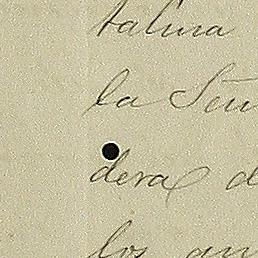 talina
la Señ
dera d
los an